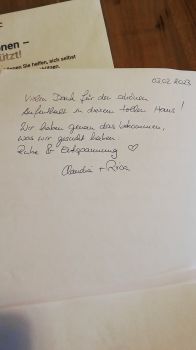 onen –
tzt!
Sie helfen, sich selbst
02.02.2023
Vielen Dank für den schönen
Aufenthalt in diesem tollen Haus!
Wir haben genau das bekommen,
was wir gesucht haben
Ruhe & Entspannung ♡
Claudia +